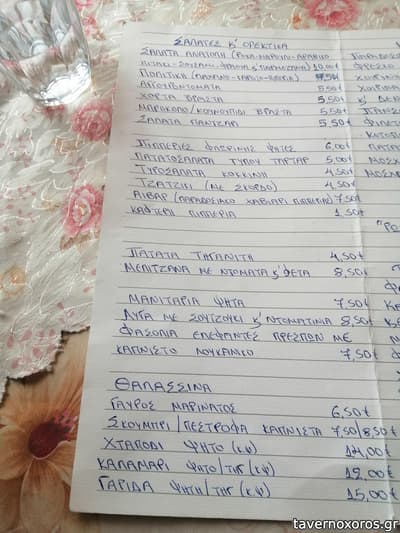 ΣΑΛΑΤΕΣ κ' ΟΡΕΚΤΙΚΑ
ΣΑΛΑΤΑ ΑΝΑΤΟΛΗ (ΡΟΚΑ-ΜΑΡΟΥΛΙ-
ΠΟΛΙΤΙΚΗ
ΑΓΓΟΥΡΝΤΟΜΑΤΑ 5,50€
ΧΟΡΤΑ ΒΡΑΣΤΑ 5,50€
ΜΠΡΟΚΟΛΟ/ΚΟΥΝΟΥΠΙΔΙ ΒΡΑΣΤΑ 5,50€
ΣΑΛΑΤΑ ΠΑΝΤΖΑΡΙ 5,50€
ΠΙΠΕΡΙΕΣ ΦΛΩΡΙΝΗΣ ΨΗΤΕΣ 6,00€
ΠΑΤΑΤΟΣΑΛΑΤΑ ΤΥΠΟΥ ΤΑΡΤΑΡ 5,00€
ΤΥΡΟΣΑΛΑΤΑ ΚΟΚΚΙΝΗ 4,50€
ΤΖΑΤΖΙΚΙ (ΜΕ ΣΚΟΡΔΟ) 4,50€
ΑΙΒΑΡ (ΠΑΡΑΔΟΣΙΑΚΟ ΧΑΒΙΑΡΙ ΠΙΠΕΡΙΑΣ) 7,50€
ΚΑΥΤΕΡΗ ΠΙΠΕΡΙΑ 1,50€
ΠΑΤΑΤΑ ΤΗΓΑΝΙΤΗ 4,50€
ΜΕΛΙΤΖΑΝΑ ΜΕ ΝΤΟΜΑΤΑ κ' ΦΕΤΑ 8,50€
ΜΑΝΙΤΑΡΙΑ ΨΗΤΑ 7,50€
ΑΥΓΑ ΜΕ ΣΟΥΤΖΟΥΚΙ κ' ΝΤΟΜΑΤΙΝΙΑ 8,50€
ΦΑΣΟΛΙΑ ΕΛΕΦΑΝΤΕΣ ΠΡΕΣΠΩΝ ΜΕ
ΚΑΠΝΙΣΤΟ ΛΟΥΚΑΝΙΚΟ 7,50€
ΘΑΛΑΣΣΙΝΑ
ΓΑΥΡΟΣ ΜΑΡΙΝΑΤΟΣ 6,50€
ΣΚΟΥΜΠΡΙ/ΠΕΣΤΡΟΦΑ ΚΑΠΝΙΣΤΑ 7,50/8,50€
ΧΤΑΠΟΔΙ ΨΗΤΟ (κψ)
ΚΑΛΑΜΑΡΙ ΨΗΤΟ/ΤΗΓ (κψ) 12,00€
ΓΑΡΙΔΑ ΨΗΤΗ/ΤΗΓ (κψ) 15,00€
tavernoxoros.gr